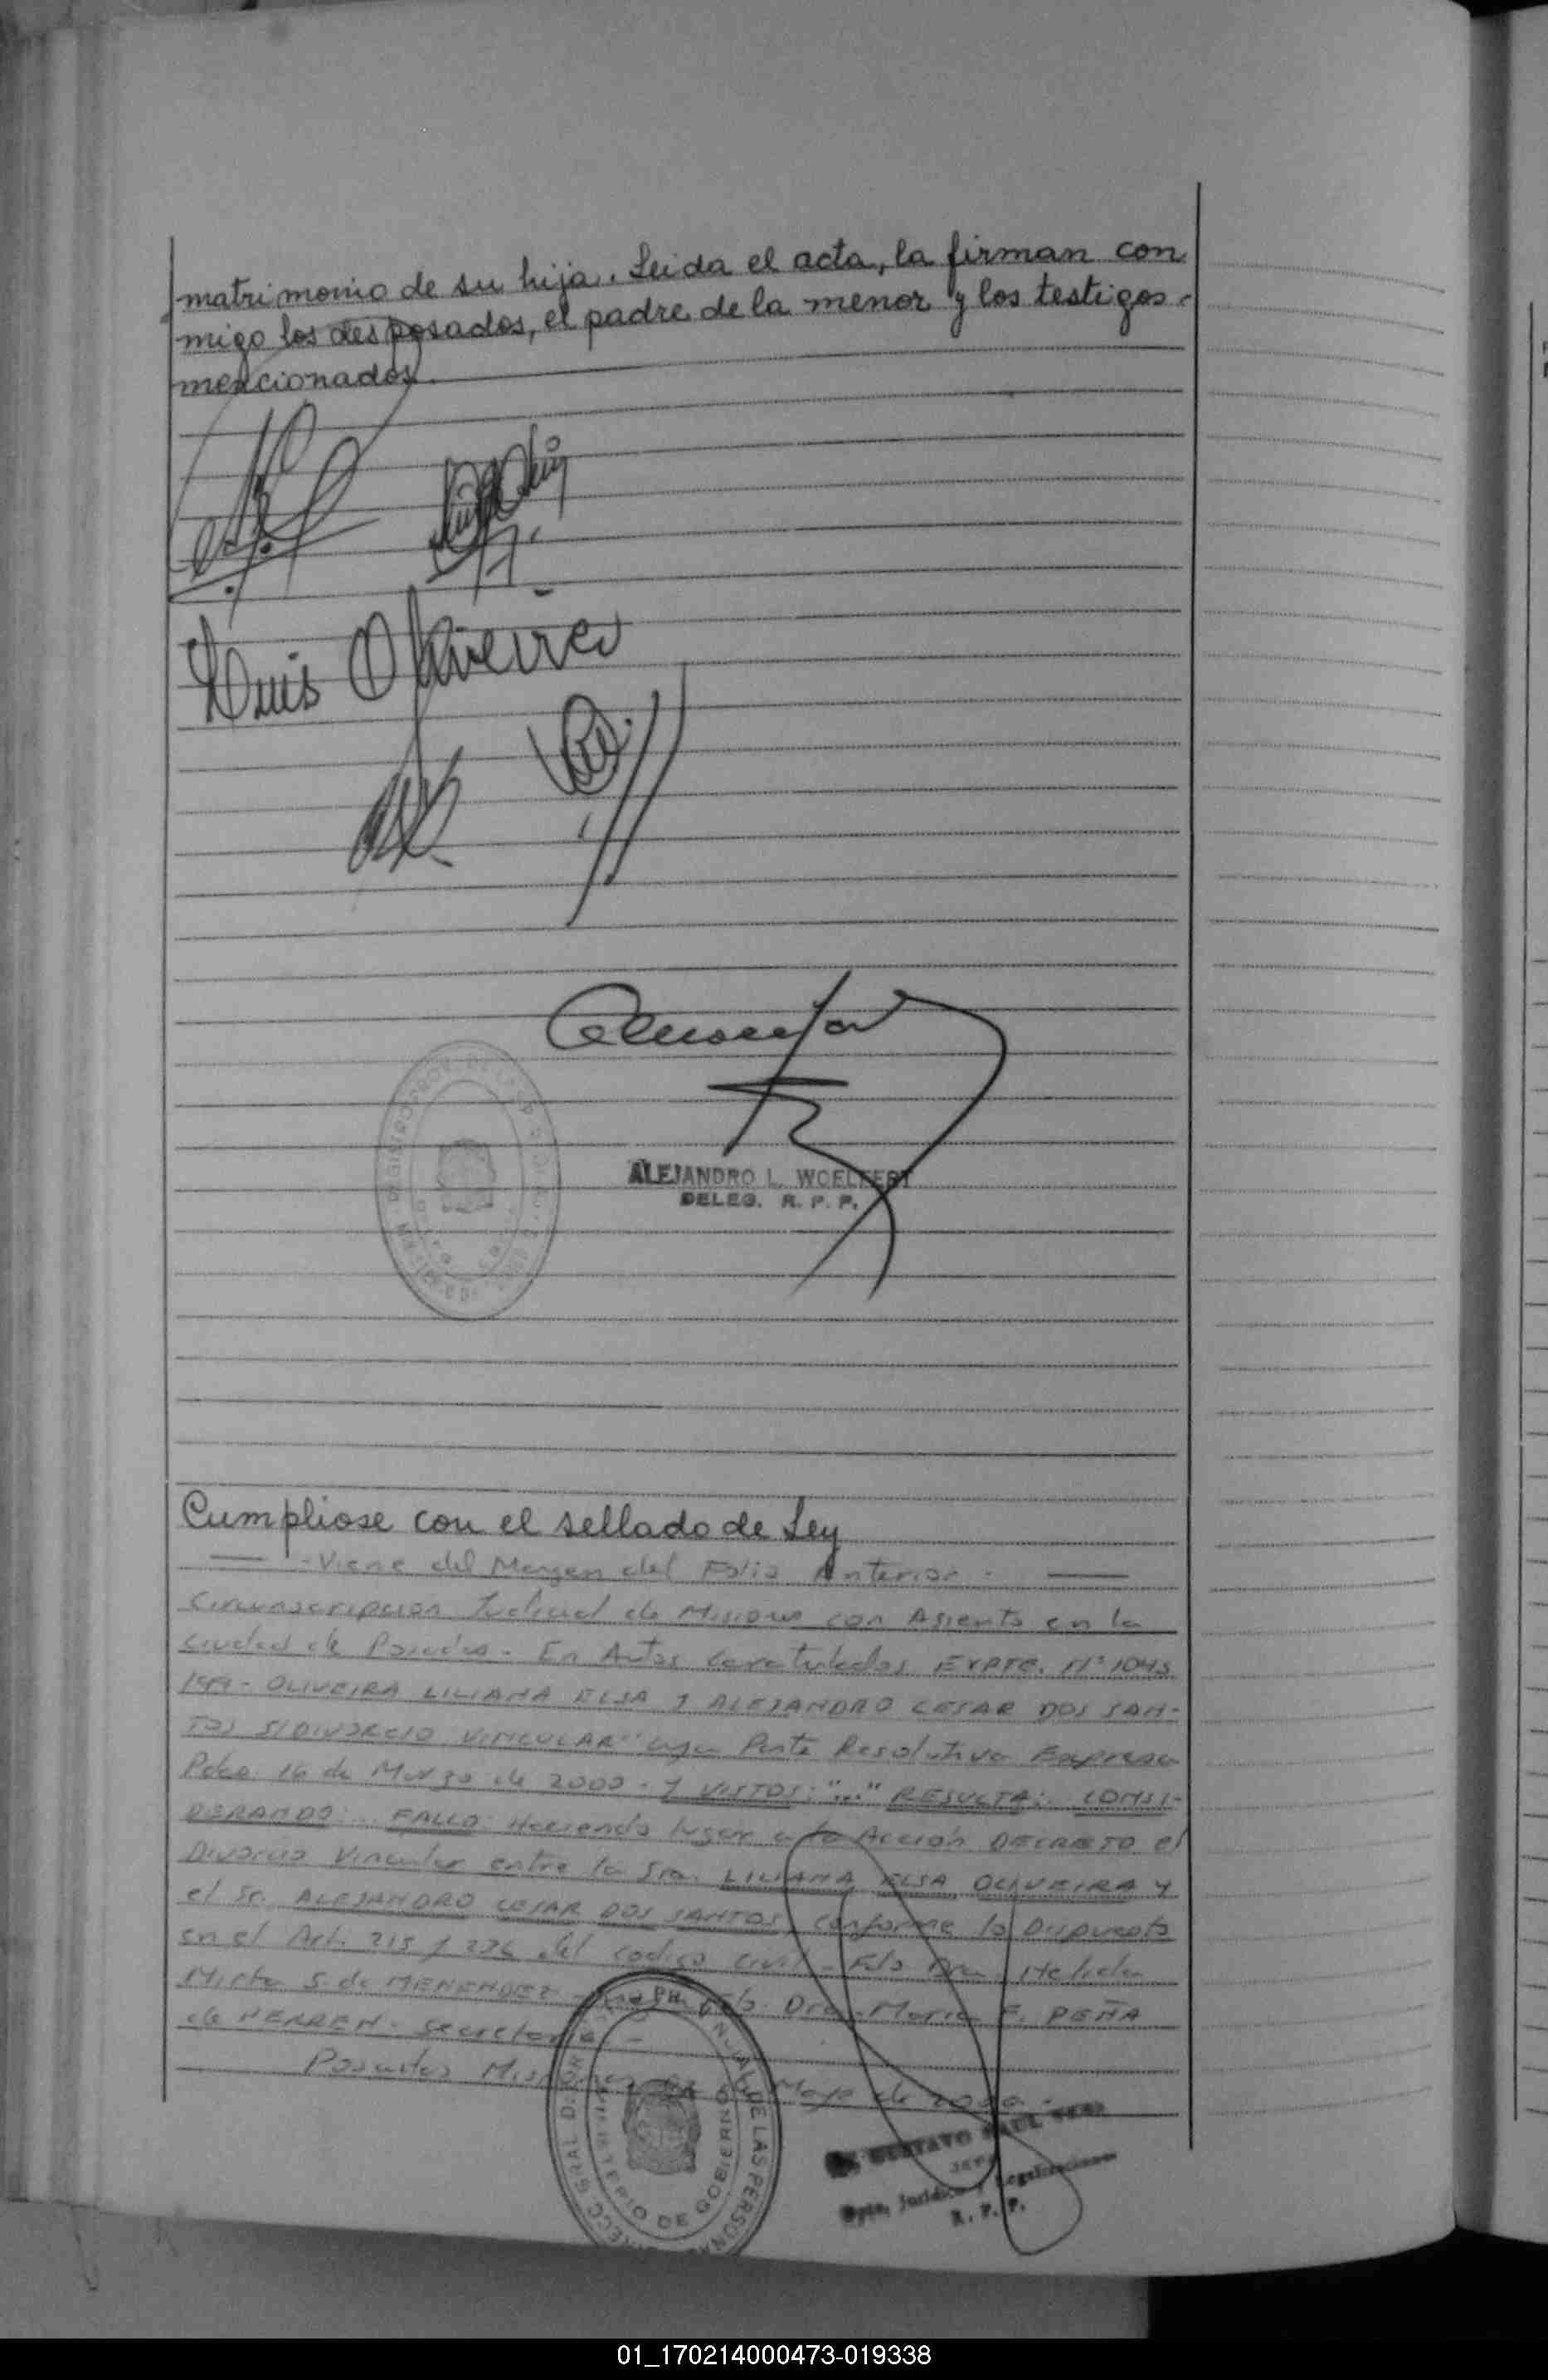 matrimonio de su hija. Leida el acta, la firman con
migo los desposados, el padre de la menor y los testigos
mencionados.
Luis Oliveira
ALEJANDRO L. WOELFERT
DELEG. R. P. P.
Cumpliose con el sellado de Ley
- Viene del Margen del Folio Anterior.
Circunscripcion Judicial de Misiones con Asiento en la
ciudad de Posadas. En Autos Caratulados EXPTE. Nº
OLIVEIRA LILIANA ELSA Y ALEJANDRO CESAR DOS SAN-
TOS S/DIVORCIO VINCULAR" cuya Parte Resolutiva Expresa
16 de Marzo de 2000. Y VISTOS: "..." RESULTA: CONSI-
DERANDO:.. FALLO: Haciendo lugar a la Acción DECRETO el
Divorcio Vincular entre la Sra. LILIANA ELSA OLIVEIRA Y
el Sr. ALEJANDRO CESAR DOS SANTOS, conforme lo Dispuesto
en el Art. 215 y 236 del codigo civil - Fdo Dra.
Mirta S. de MENENDEZ - Fdo. Dra. Maria F. PEÑA
de HERREN. secretaria. -
Posadas Misiones Mayo de 2000.
GUSTAVO SAUL
JEFE
Dpto. Jurídico y Legalizaciones
R. P. P.
MINISTERIO DE GOBIERNO
01_170214000473-019338